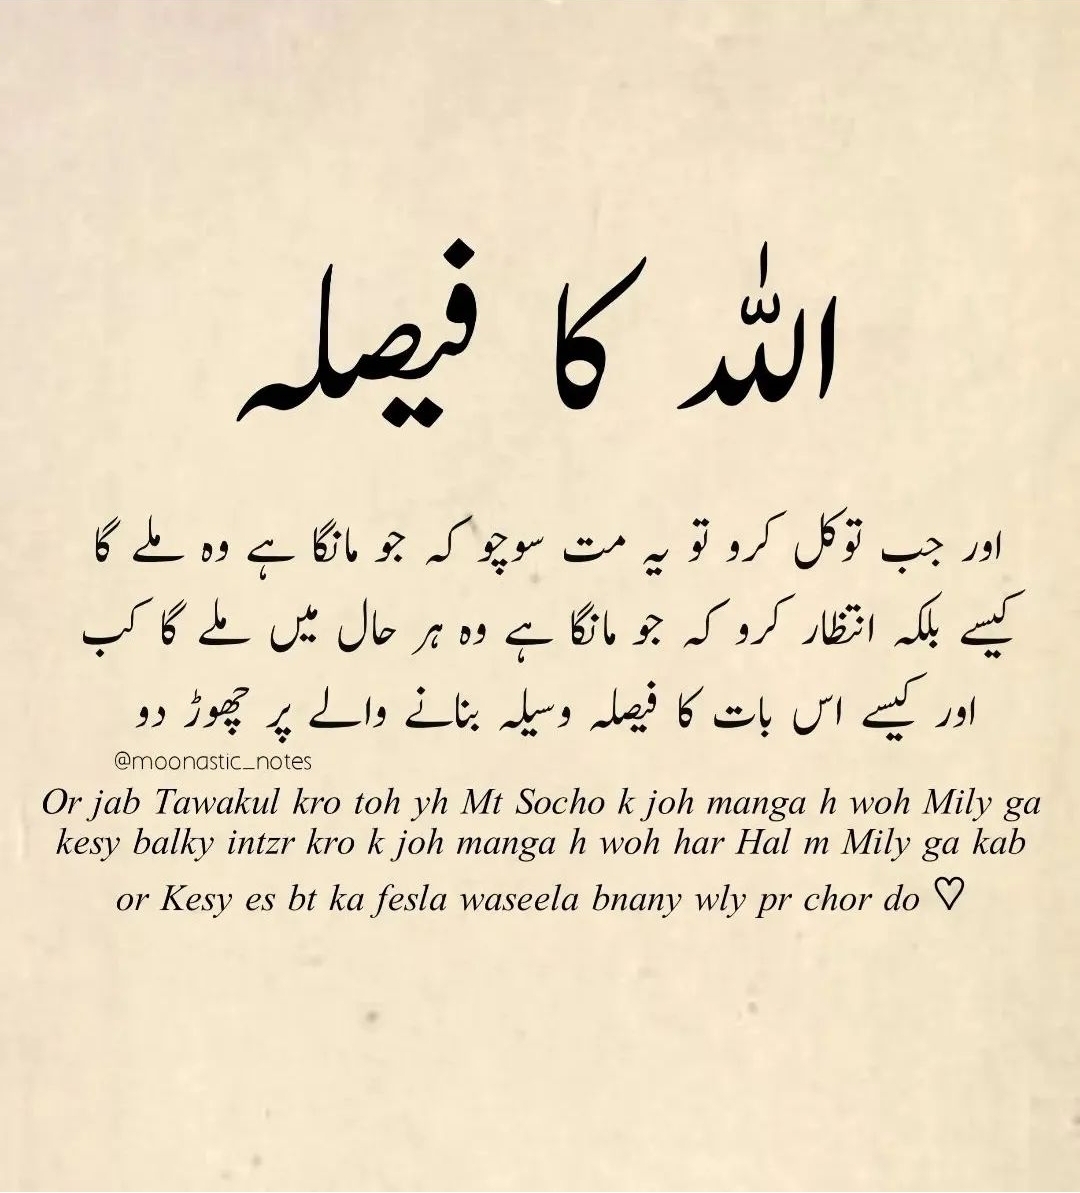 اللہ کا فیصلہ
اور جب توکل کرو تو یہ مت سوچو کہ جو مانگا ہے وہ ملے گا
کیسے بلکہ انتظار کرو کہ جو مانگا ہے وہ ہر حال میں ملے گا کب
اور کیسے اس بات کا فیصلہ وسیلہ بنانے والے پر چھوڑ دو
@moonastic_notes
Or jab Tawakul kro toh yh Mt Socho k joh manga h woh Mily ga
kesy balky intzr kro k joh manga h woh har Hal m Mily ga kab
or Kesy es bt ka fesla waseela bnany wly pr chor do ♡